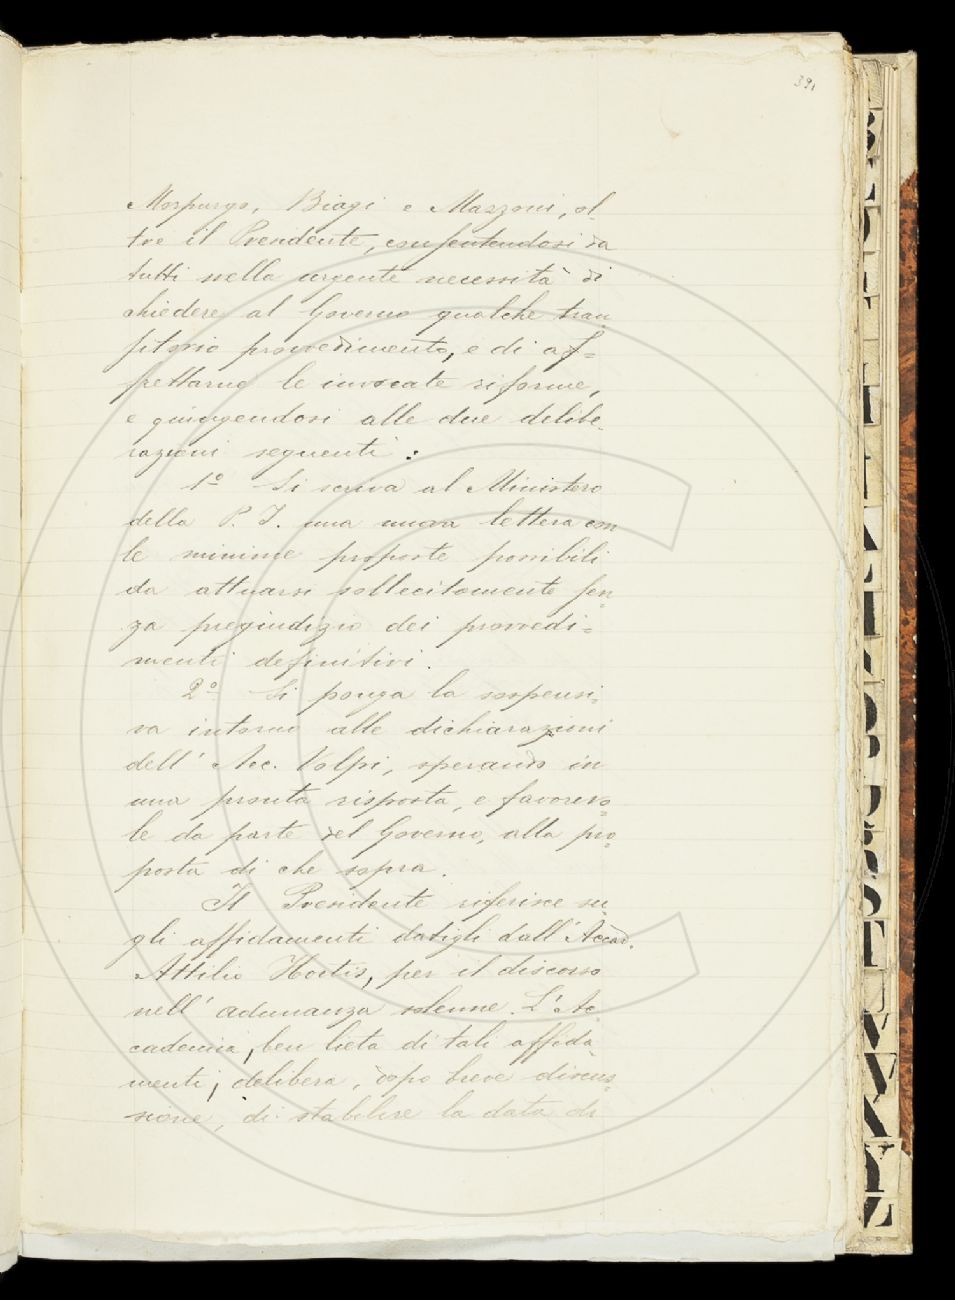 391
Morpurgo, Biagi e Mazzoni, ol
tre il Presidente, consentendosi da
tutti nella urgente necessità di
chiedere al Governo qualche tran
sitorio provvedimento, e di as=
pettarne le invocate riforme,
e giungendosi alle due delibe
razioni seguenti:
1º Si scriva al Ministero
della P. I. una nuova lettera con
le minime proposte possibili
da attuarsi sollecitamente sen
za pregiudizio dei provvedi=
menti definitivi.
2º Si ponga la sospensi
va intorno alle dichiarazioni
dell' Acc. Volpi, sperando in
una pronta risposta, e favorevo
le da parte del Governo, alla pro
posta di che sopra.
Il Presidente riferisce su
gli affidamenti datigli dall'Accad.
Attilio Hortis, per il discorso
nell' adunanza solenne. L'Ac
cademia, ben lieta di tali affida
menti, delibera, dopo breve discus
sione, di stabilire la data di
B
T
V
X
Y
Z